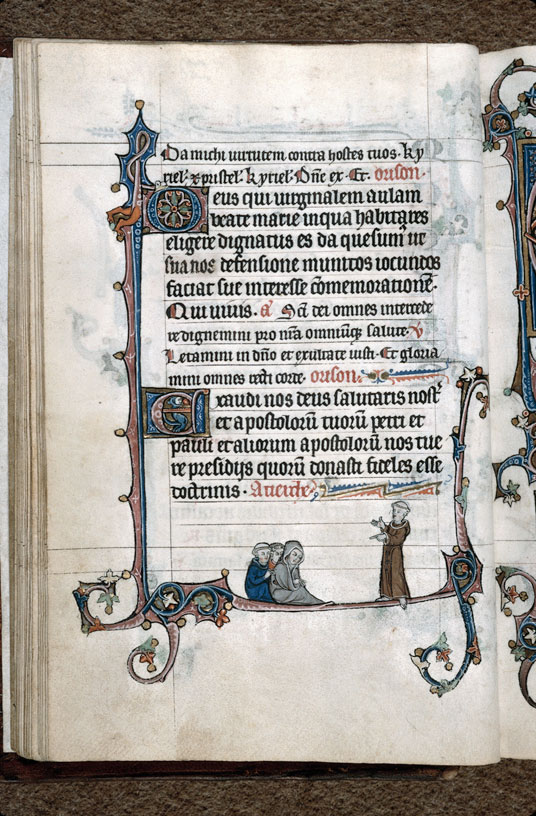 Da michi uirtutem contra hostes tuos. Ky
riel. xpistel. kyriel. Dn̄e ex. Et. orison.
Deus qui uirginalem aulam
beate marie in qua habitares
eligere dignatus es da quesum̄ ut
sua nos defensione munitos iocundos
faciat sue interesse cōmemorationē.
Qui uiuis. a. Sc̄i dei omnes intercede
re dignemini pro nr̄a omniumq; salute. V
Letamini in dn̄o et exultate iusti. Et gloria
mini omnes recti corde. orison.
Exaudi nos deus salutaris nost᷑
et apostolorū tuorū petri et
pauli et aliorum apostolorū nos tue
re presidijs quorū donasti fideles esse
doctrinis. A tierche.